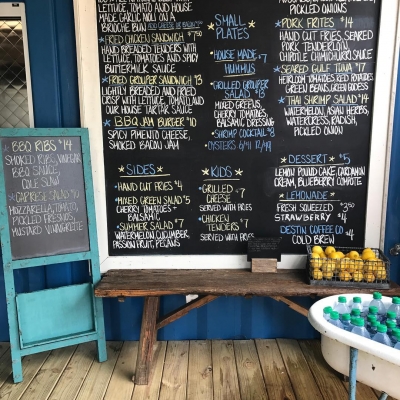 LETTUCE, TOMATO AND HOUSE
MADE GARLIC MAYO ON A
BRIOCHE BUN
FRIED CHICKEN SANDWICH $7.50
HAND BREADED TENDERS WITH
LETTUCE, TOMATOES AND SPICY
BUTTERMILK SAUCE
FRIED GROUPER SANDWICH $13
LIGHTLY BREADED AND FRIED
CRISP WITH LETTUCE, TOMATO AND
OUR HOUSE TARTAR SAUCE
BBQ JAM BURGER $10
SPICY PIMENTO CHEESE,
SMOKED BACON JAM
SIDES
HAND CUT FRIES $4
MIXED GREEN SALAD $5
CHERRY TOMATOES +
BALSAMIC
SUMMER SALAD $7
WATERMELON, CUCUMBER
PASSION FRUIT, PECANS
SMALL
PLATES
HOUSE MADE $7
HUMMUS
GRILLED GROUPER
SALAD $13
MIXED GREENS,
CHERRY TOMATOES,
BALSAMIC DRESSING
SHRIMP COCKTAIL $8
OYSTERS 6/11 12/19
KIDS
GRILLED $7
CHEESE
SERVED WITH FRIES
CHICKEN $7
TENDERS
SERVED WITH FRIES
PICKLED ONIONS
PORK FRITES $14
HAND CUT FRIES, SEARED
PORK TENDERLOIN,
CHIPOTLE CHIMICHURRI SAUCE
SEARED GULF TUNA $17
HEIRLOOM TOMATOES, RED POTATOES
GREEN BEANS, GREEN GODDESS
THAI SHRIMP SALAD $14
WATERMELON, ASIAN HERBS,
WATERCRESS, RADISH,
PICKLED ONION
DESSERT $5
LEMON POUND CAKE, CARDAMOM
CREAM, BLUEBERRY COMPOTE
LEMONADE
FRESH SQUEEZED $3.50
STRAWBERRY $4
DESTIN COFFEE CO
COLD BREW $4
BBQ RIBS $14
SMOKED RIBS, VINEGAR
BBQ SAUCE,
COLE SLAW
CAPRESE SALAD $10
MOZZARELLA, TOMATO,
PICKLED FRESNOS,
MUSTARD VINAIGRETTE